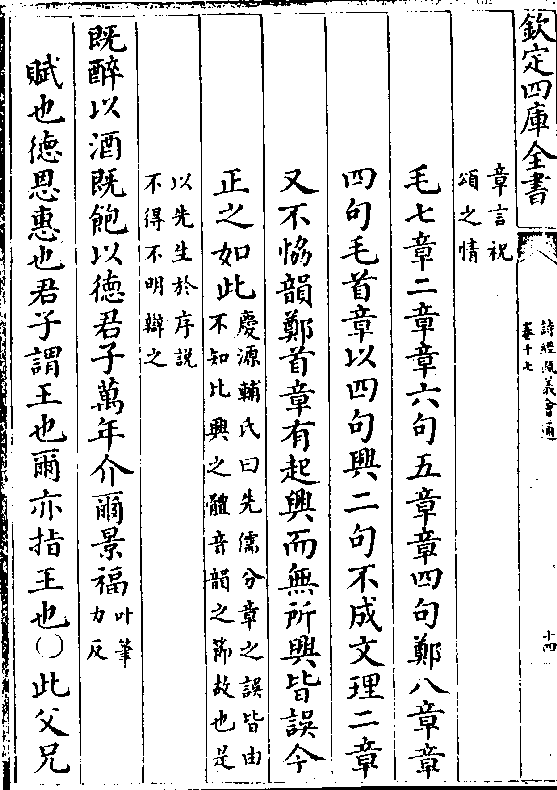 欽定四庫全書
詩經疏義會通
卷十七
十四
章言祝
頌之情
毛七章二章章六句五章章四句鄭八章章
四句毛首章以四句興二句不成文理二章
又不恊韻鄭首章有起興而無所興皆誤今
正之如此
慶源輔氏曰先儒分章之誤皆由
不知比興之體音韻之節故也是
以先生於序説
不得不明辯之
既醉以酒既飽以徳君子萬年介爾景福
叶筆
力反
賦也徳恩惠也君子謂王也爾亦指王也〇此父兄